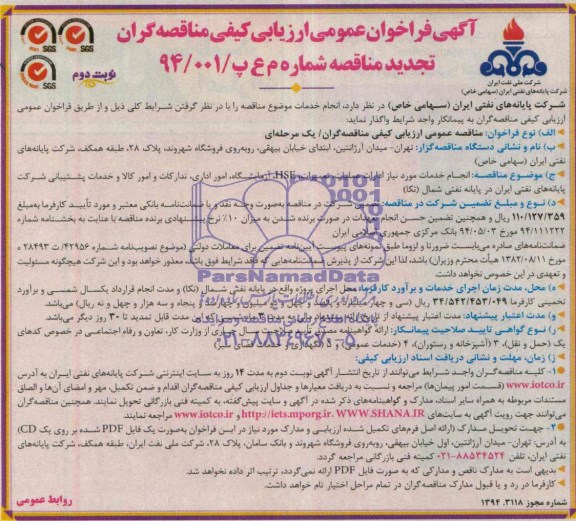 آگهی فراخوان عمومی ارزیابی کیفی مناقصه گران
تجدید مناقصه شماره م ع پ/۹۴/۰۰۱
نوبت دوم
شرکت ملی نفت ایران
شرکت پایانه‌های نفتی ایران (سهامی خاص)
SGS
SGS
SGS
شرکت پایانه‌های نفتی ایران (سهامی خاص) در نظر دارد، انجام خدمات موضوع مناقصه را با در نظر گرفتن شرایط کلی ذیل و از طریق فراخوان عمومی
ارزیابی کیفی مناقصه‌گران به پیمانکار واجد شرایط واگذار نماید:
الف) نوع فراخوان: مناقصه عمومی ارزیابی کیفی مناقصه‌گران/ یک مرحله‌ای
ب) نام و نشانی دستگاه مناقصه‌گزار: تهران- میدان آرژانتین، ابتدای خیابان بیهقی، روبه‌روی فروشگاه شهروند، پلاک ۲۸، طبقه همکف، شرکت پایانه‌های
نفتی ایران (سهامی خاص)
ج) موضوع مناقصه: انجام خدمات مورد نیاز ادارات عملیات، تعمیرات، HSE، آزمایشگاه، امور اداری، تدارکات و امور کالا و خدمات پشتیبانی شرکت
پایانه‌های نفتی ایران در پایانه نفتی شمال (نکا)
د) نوع و مبلغ تضمین شرکت در مناقصه: تضمین شرکت در مناقصه به‌صورت وجه نقد و یا ضمانت‌نامه بانکی معتبر و مورد تأیید کارفرما به‌مبلغ
۱۱۰/۱۲۷/۳۵۹ ریال و همچنین تضمین حسن انجام تعهدات در صورت برنده شدن به میزان ۱۰٪ نرخ پیشنهادی برنده مناقصه با عنایت به بخشنامه شماره
۹۴/۱۱۱۲۲۲ مورخ ۹۴/۰۵/۰۳ بانک مرکزی جمهوری اسلامی ایران
ضمانت‌نامه‌های صادره می‌بایست ضرورتا و لزوما طبق نمونه‌های پیوست آیین‌نامه تضمین برای معاملات دولتی (موضوع تصویب‌نامه شماره ۴۲۹۵۶/ت ۲۸۴۹۳ ه
مورخ ۱۳۸۲/۰۸/۱۱ هیأت محترم وزیران) باشد، لذا این شرکت از پذیرش ضمانت‌نامه‌هایی که فاقد شرایط فوق باشد، معذور خواهد بود و این شرکت هیچگونه مسئولیت
و تعهدی در این خصوص نخواهد داشت.
ه) محل، مدت زمان اجرای خدمات و برآورد کارفرما: محل اجرای پروژه واقع در پایانه نفتی شمال (نکا) و مدت انجام قرارداد یکسال شمسی و برآورد
تخمینی کارفرما ۳۴/۵۴۲/۴۵۳/۰۴۹ ریال (سی و چهار میلیارد و پانصد و چهل و دو میلیون و چهارصد و پنجاه و سه هزار و چهل و نه ریال) می‌باشد.
و) مدت اعتبار پیشنهاد: مدت اعتبار پیشنهاد از تاریخ
قابل تمدید تا ۳۰ روز دیگر می‌باشد.
ز) نوع گواهی تایید صلاحیت پیمانکار: ارائه گواهینامه معتبر تایید صلاحیت سال جاری از وزارت کار، تعاون و رفاه اجتماعی در خصوص کدهای
یک (حمل و نقل)، ۳ (آشپزخانه و رستوران)، ۴ (خدمات عمومی) و
ز) زمان، مهلت و نشانی دریافت اسناد ارزیابی کیفی:
۱- کلیه مناقصه‌گران واجد شرایط می‌توانند از تاریخ انتشار آگهی نوبت دوم به مدت ۱۴ روز به سایت اینترنتی شرکت پایانه‌های نفتی ایران به آدرس
www.iotco.ir (قسمت امور پیمان‌ها) مراجعه و نسبت به دریافت معیارها و جداول ارزیابی کیفی مناقصه‌گران اقدام و ضمن تکمیل، مهر و امضای آن‌ها و الصاق
مستندات مربوطه به همراه سایر اسناد، مدارک و گواهینامه‌های ذکر شده در آگهی و سایت پیش‌گفته، به کمیته فنی بازرگانی تحویل نمایند. همچنین مناقصه‌گران
می‌توانند جهت رویت آگهی به سایت‌های WWW.SHANA.IR، http://iets.mporg.ir و www.iotco.ir مراجعه نمایند.
۲- جهت تحویل مدارک (ارائه اصل فرم‌های تکمیل شده ارزیابی و مدارک مورد نیاز در این فراخوان به‌صورت یک فایل PDF شده بر روی یک CD)
به آدرس: تهران- میدان آرژانتین، اول خیابان بیهقی، روبه‌روی فروشگاه شهروند و بانک سامان، پلاک ۲۸، شرکت ملی نفت ایران، طبقه همکف، شرکت پایانه‌های
نفتی ایران، تلفن ۸۸۵۳۴۵۲۴-۰۲۱ کمیته فنی بازرگانی مراجعه گردد.
بدیهی است به مدارک ناقص و مدارکی که به صورت فایل PDF ارائه نمی‌گردد، ترتیب اثر داده نخواهد شد.
کارفرما در رد و یا قبول مدارک مناقصه‌گران در تمام مراحل اختیار تام خواهد داشت.
شماره مجوز ۳۱۱۸. ۱۳۹۴
روابط عمومی
ParsNamadData
۰۲۱-۸۸۳۴۹۶۷۰-۵